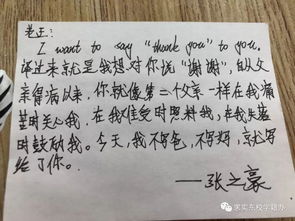 老王:
I want to say "thank you" to you.
译过来就是我想对你说"谢谢",自从父
亲得病以来,你就像第二个父亲一样在我痛
苦时关心我,在我难受时照料我,在我失落
时鼓励我。今天,我不写爸,不写妈,就写
给了你。
——张之豪
求实东校学籍办